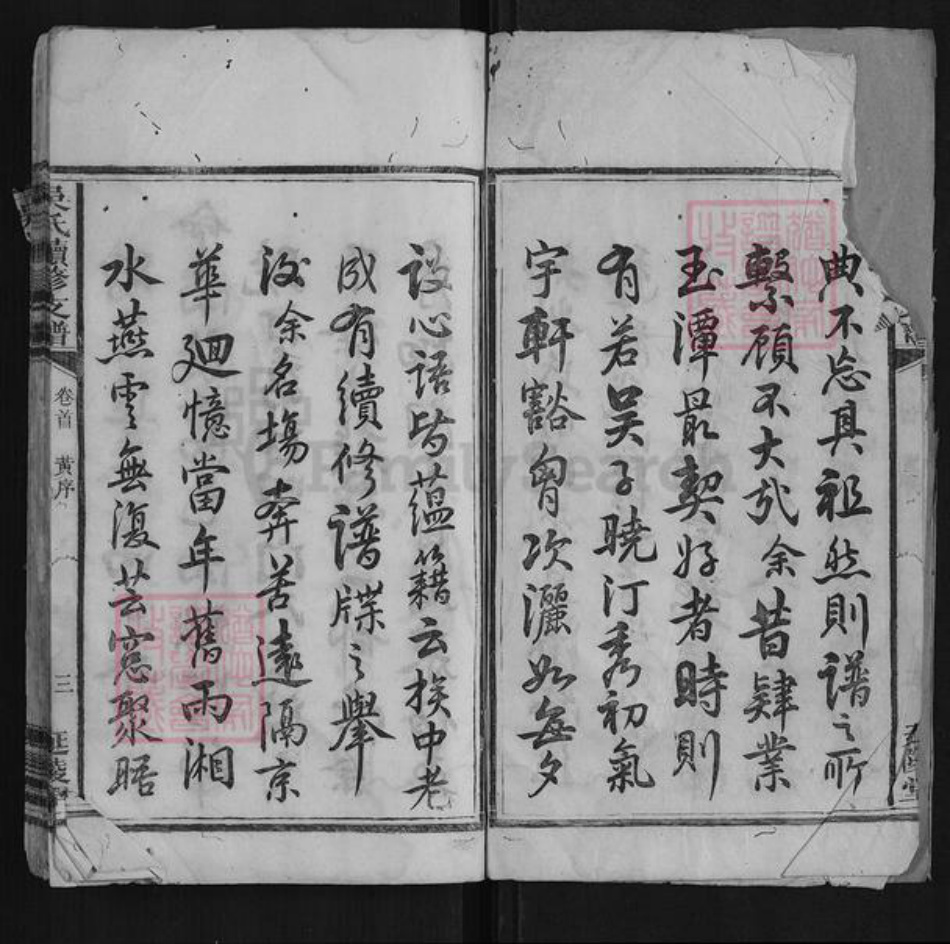 典不忘具祖然則譜之所
繫顧不大哉余昔肄業
玉潭最契好者時則
有若吴子曉汀秀初氣
宇軒豁胷次灑如每夕
設心語皆蘊籍云族中老
成有續修譜牒之舉
後余名場奔苦遠隔京
華廻憶當年舊雨湘
水燕雲無復芸窓聚晤
吳氏續修支譜
卷首 黃序
三 延陵
FamilySearch